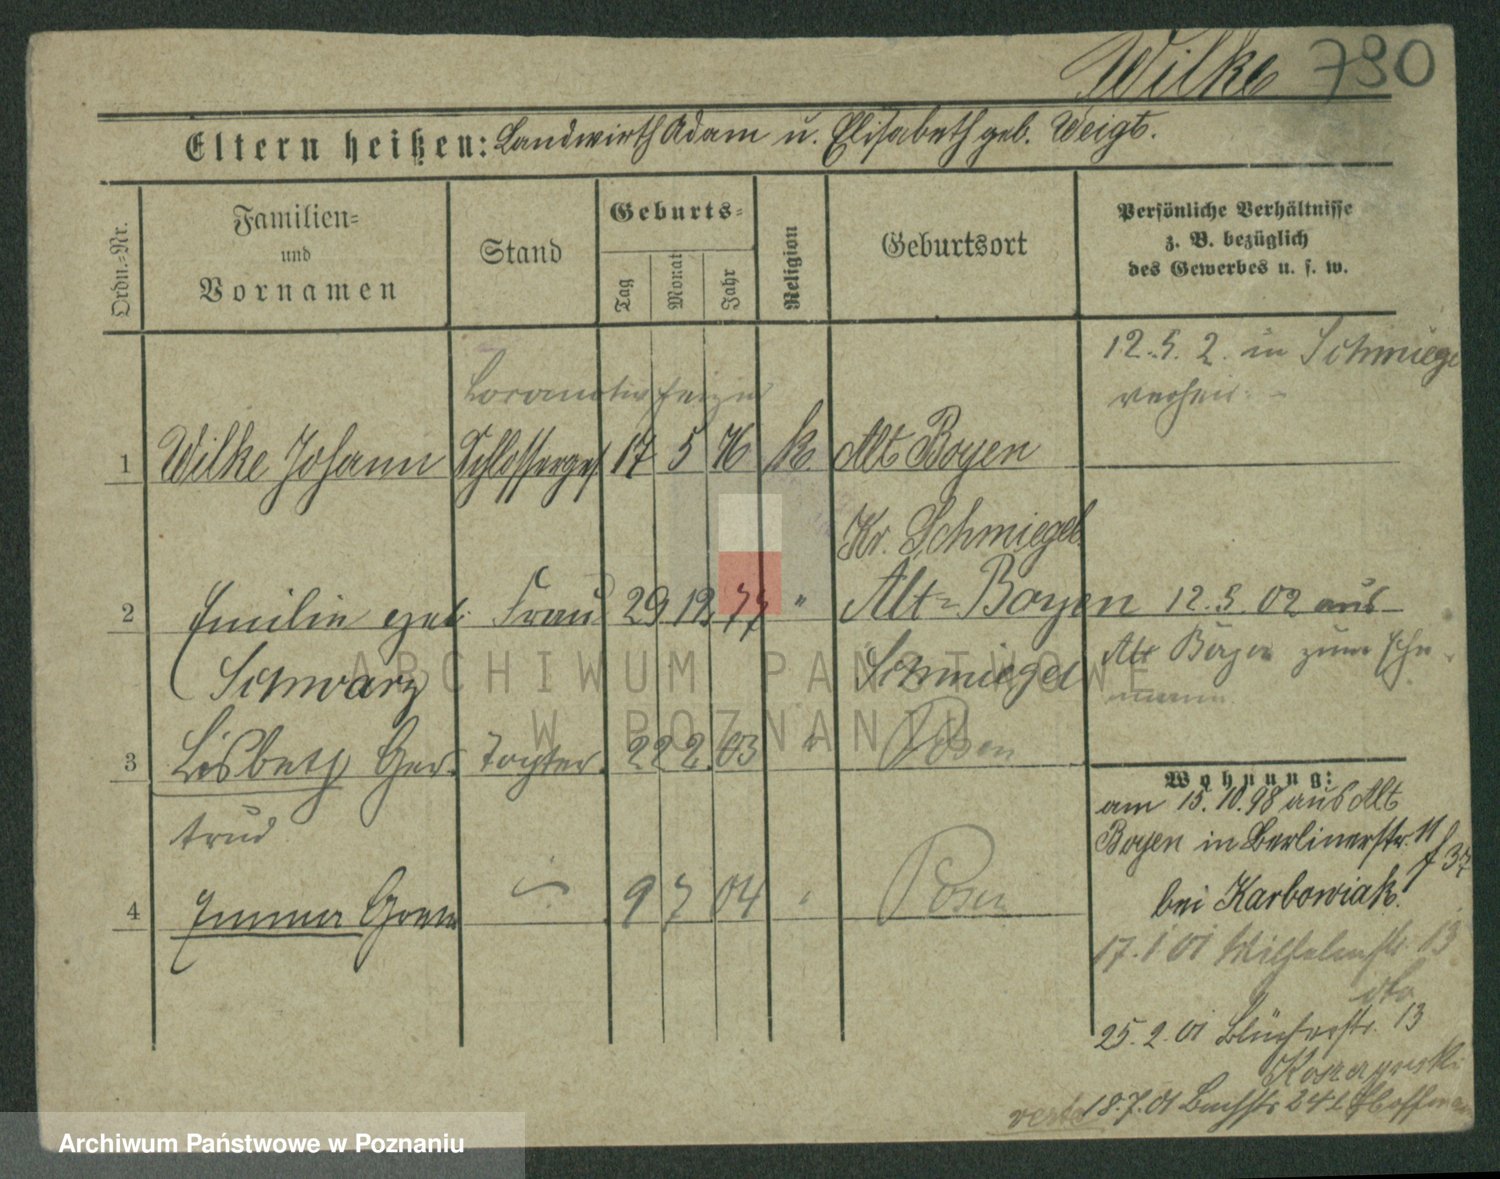 Wilke 790
Eltern heißen: Landwirth Adam u. Elisabeth geb. Weigt.
Ordn.-Nr.
Familien-
und
Vornamen
Stand
Geburts-
Tag
Monat
Jahr
Religion
Geburtsort
Persönliche Verhältnisse
z. B. bezüglich
des Gewerbes u. s. w.
12.5.2. in Schmiegel
verheir.
Locomotivheizer
1 Wilke Johann Schlosserges. 17 5 76 k. Alt Boyen
Kr. Schmiegel
2 Emilie geb. Frau 29 12 77 " Alt-Boyen 12.5.02 aus
Schwarz Schmiegel Alt Boyen zum Ehe-
mann
3 Lisbeth Ger- Tochter 22 2 03 " Posen
trud
4 Emma 9 7 04 " Posen
Wohnung:
am 15.10.98 aus Alt
Boyen in Berlinerstr. 11
bei Karbowiak.
17.1 01 Wilhelmstr. 13
dto
25.2.01 Blücherstr. 13
18.7.01 Bachstr 24 Hoffmann
ARCHIWUM PAŃSTWOWE
W POZNANIU
Archiwum Państwowe w Poznaniu